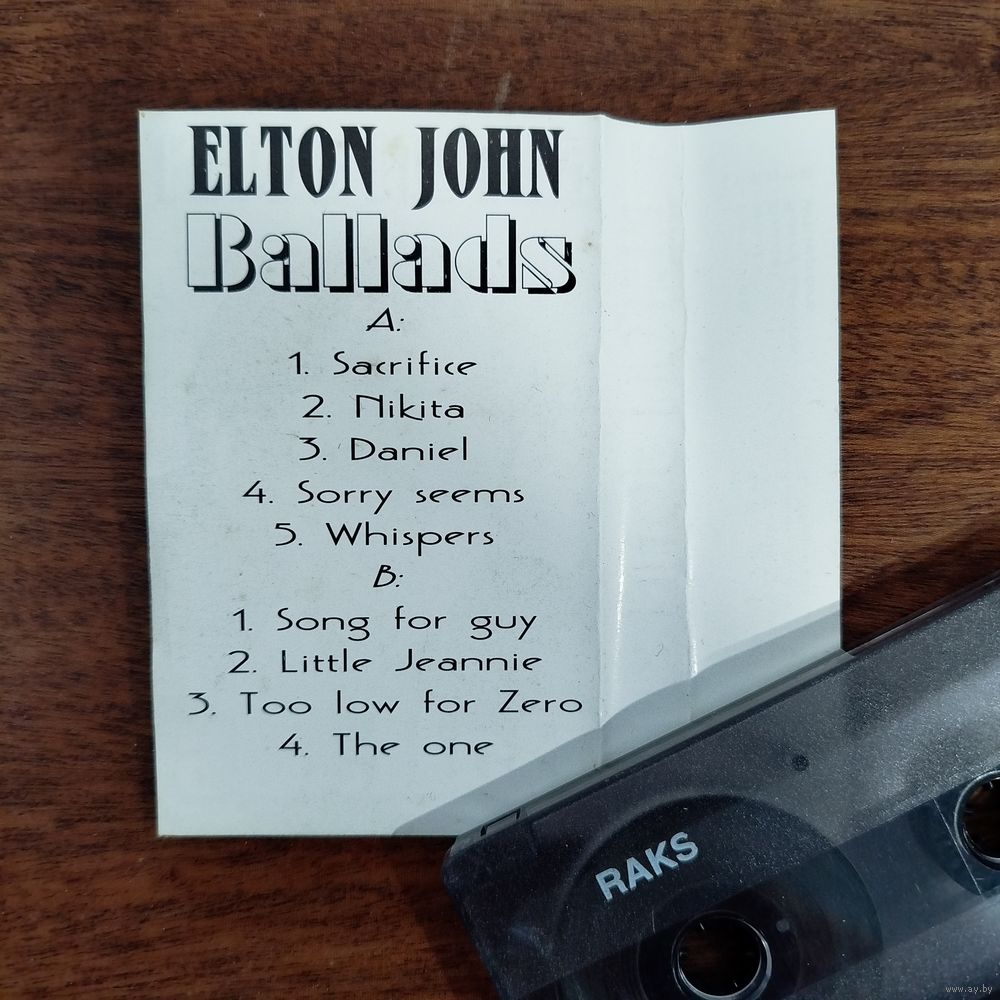 ELTON JOHN
Ballads
A:
1. Sacrifice
2. Nikita
3. Daniel
4. Sorry seems
5. Whispers
B:
1. Song for guy
2. Little Jeannie
3. Too low for Zero
4. The one
RAKS
www.ay.by